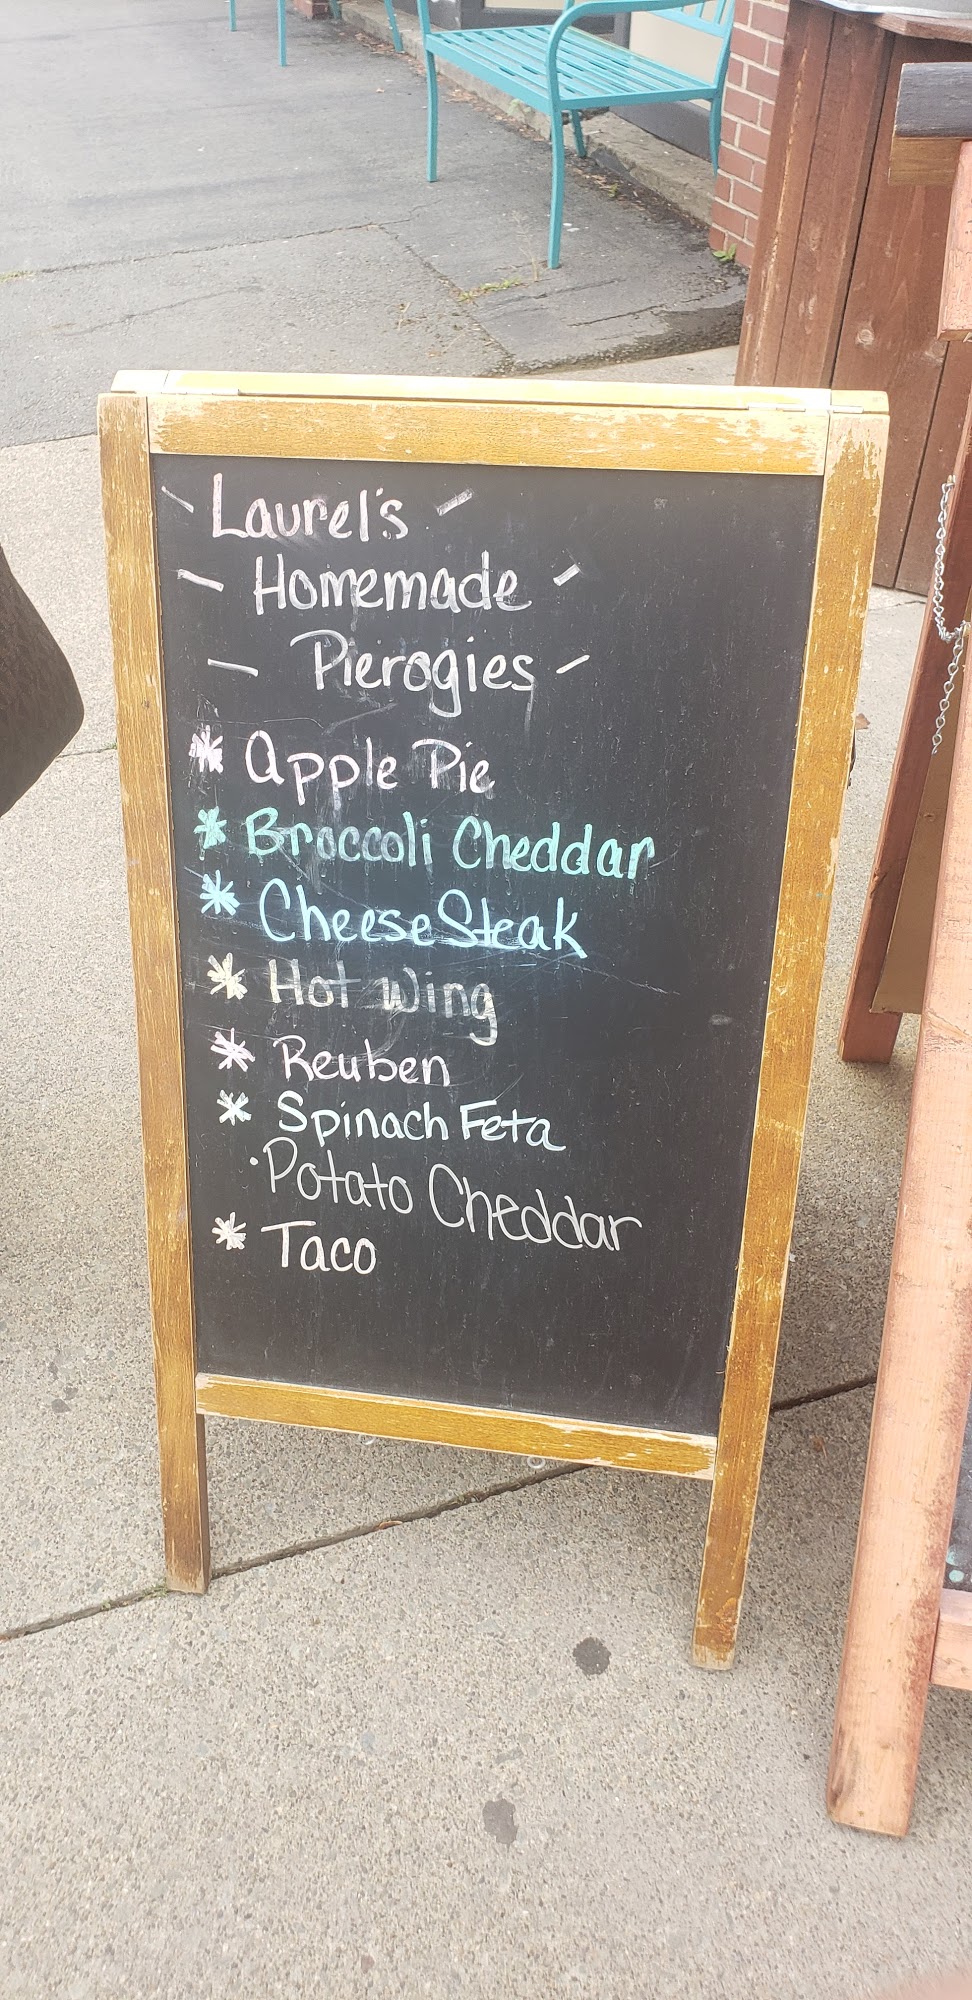 Laurel's
Homemade
Pierogies
* Apple Pie
* Broccoli Cheddar
* Cheese Steak
* Hot Wing
* Reuben
* Spinach Feta
· Potato Cheddar
* Taco